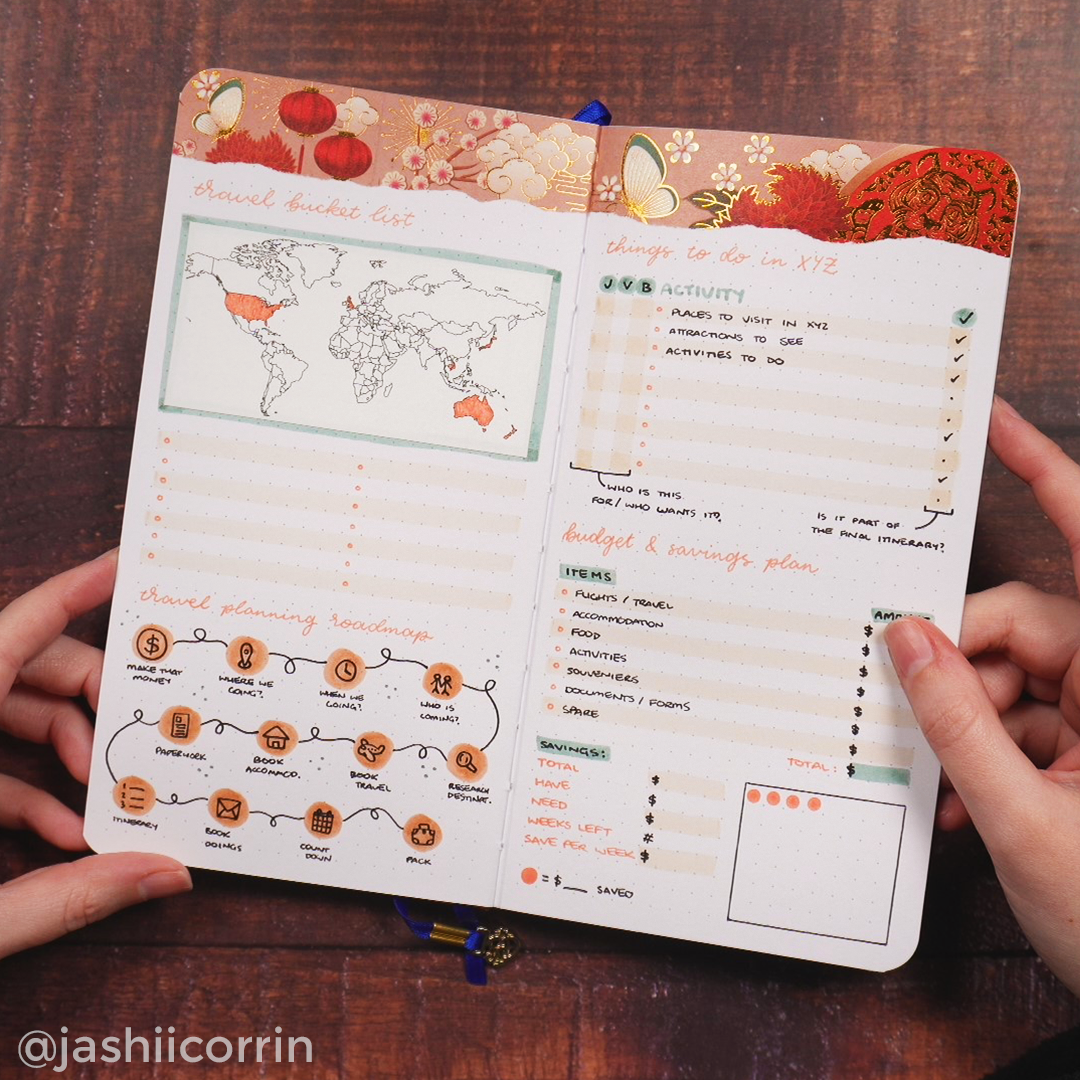 travel bucket list
travel planning roadmap
$
MAKE THAT
MONEY
WHERE WE
GOING?
WHEN WE
GOING?
WHO IS
COMING?
PAPERWORK
BOOK
ACCOMMCO.
BOOK
TRAVEL
RESEARCH
DESTINAT.
ITINERARY
BOOK
DOINGS
COUNT
DOWN
PACK
things to do in XYZ
J V B ACTIVITY ✓
PLACES TO VISIT IN XYZ ✓
ATTRACTIONS TO SEE ✓
ACTIVITIES TO DO ✓
✓
✓
WHO IS THIS
FOR/WHO WANTS IT?
IS IT PART OF
THE FINAL ITINERARY?
budget & savings plan
ITEMS
FLIGHTS / TRAVEL $
ACCOMMODATION $
FOOD $
ACTIVITIES $
SOUVENIERS $
DOCUMENTS / FORMS $
SPARE $
TOTAL: $
SAVINGS:
TOTAL $
HAVE $
NEED $
WEEKS LEFT #
SAVE PER WEEK $
= $___ SAVED
@jashiicorrin